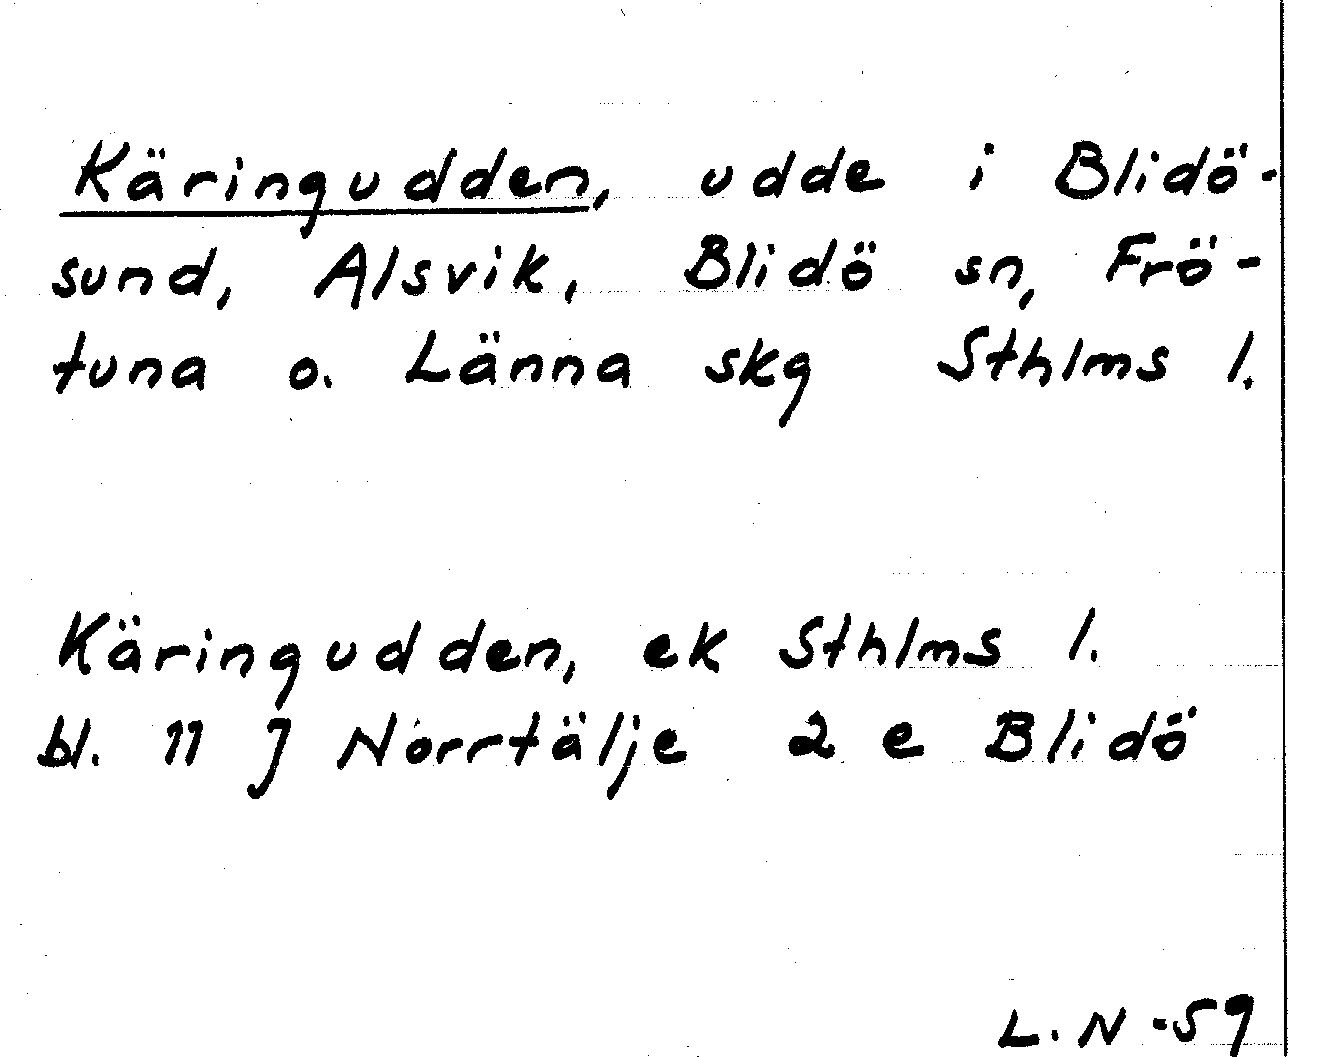 Käringudden, udde i Blidö-
sund, Alsvik, Blidö sn, Frö-
tuna o. Länna skg Sthlms l.
Käringudden, ek Sthlms l.
bl. 11 J Norrtälje 2 e Blidö
L. N -59